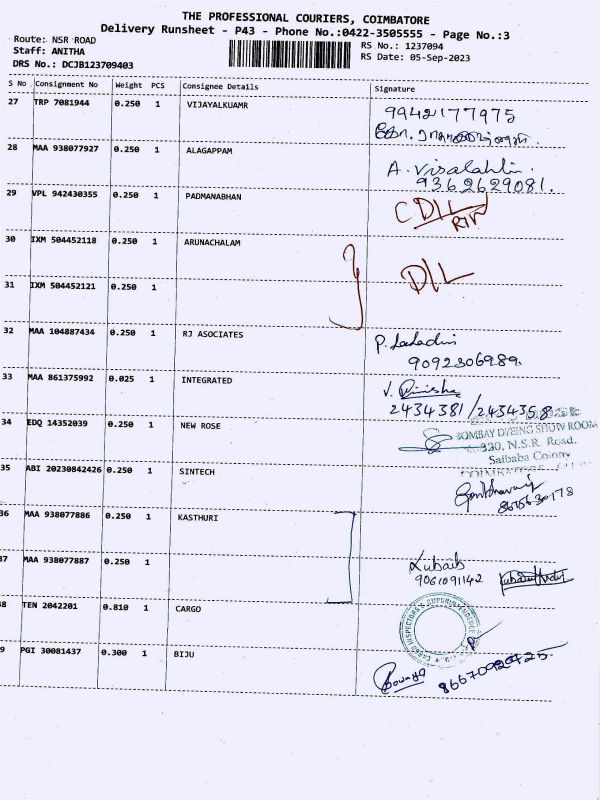 THE PROFESSIONAL COURIERS, COIMBATORE
Delivery Runsheet - P43 - Phone No.:0422-3505555 - Page No.:3
Route: NSR ROAD
RS No.: 1237094
Staff: ANITHA
RS Date: 05-Sep-2023
DRS No.: DCJB123709403
S No Consignment No Weight PCS Consignee Details Signature
27 TRP 7081944 0.250 1 VIJAYALKUAMR 9942177975
28 MAA 938077927 0.250 1 ALAGAPPAM A. Visalahi
9362629081.
29 VPL 942430355 0.250 1 PADMANABHAN C D/L
30 IXM 504452118 0.250 1 ARUNACHALAM D/L
31 IXM 504452121 0.250 1
32 MAA 104887434 0.250 1 RJ ASOCIATES P.
9092306989.
33 MAA 861375992 0.025 1 INTEGRATED V.
2434381/2434358
34 EDQ 14352039 0.250 1 NEW ROSE
BOMBAY DYEING SHOW ROOM
330, N.S.R. Road,
Saibaba Colony
35 ABI 20230842426 0.250 1 SINTECH
8675630178
36 MAA 938077886 0.250 1 KASTHURI
37 MAA 938077887 0.250 1
9061091142
38 TEN 2042201 0.810 1 CARGO
CARGO INSPECTORS & SUPERINTENDENCE
39 PGI 30081437 0.300 1 BIJU
8667092425.